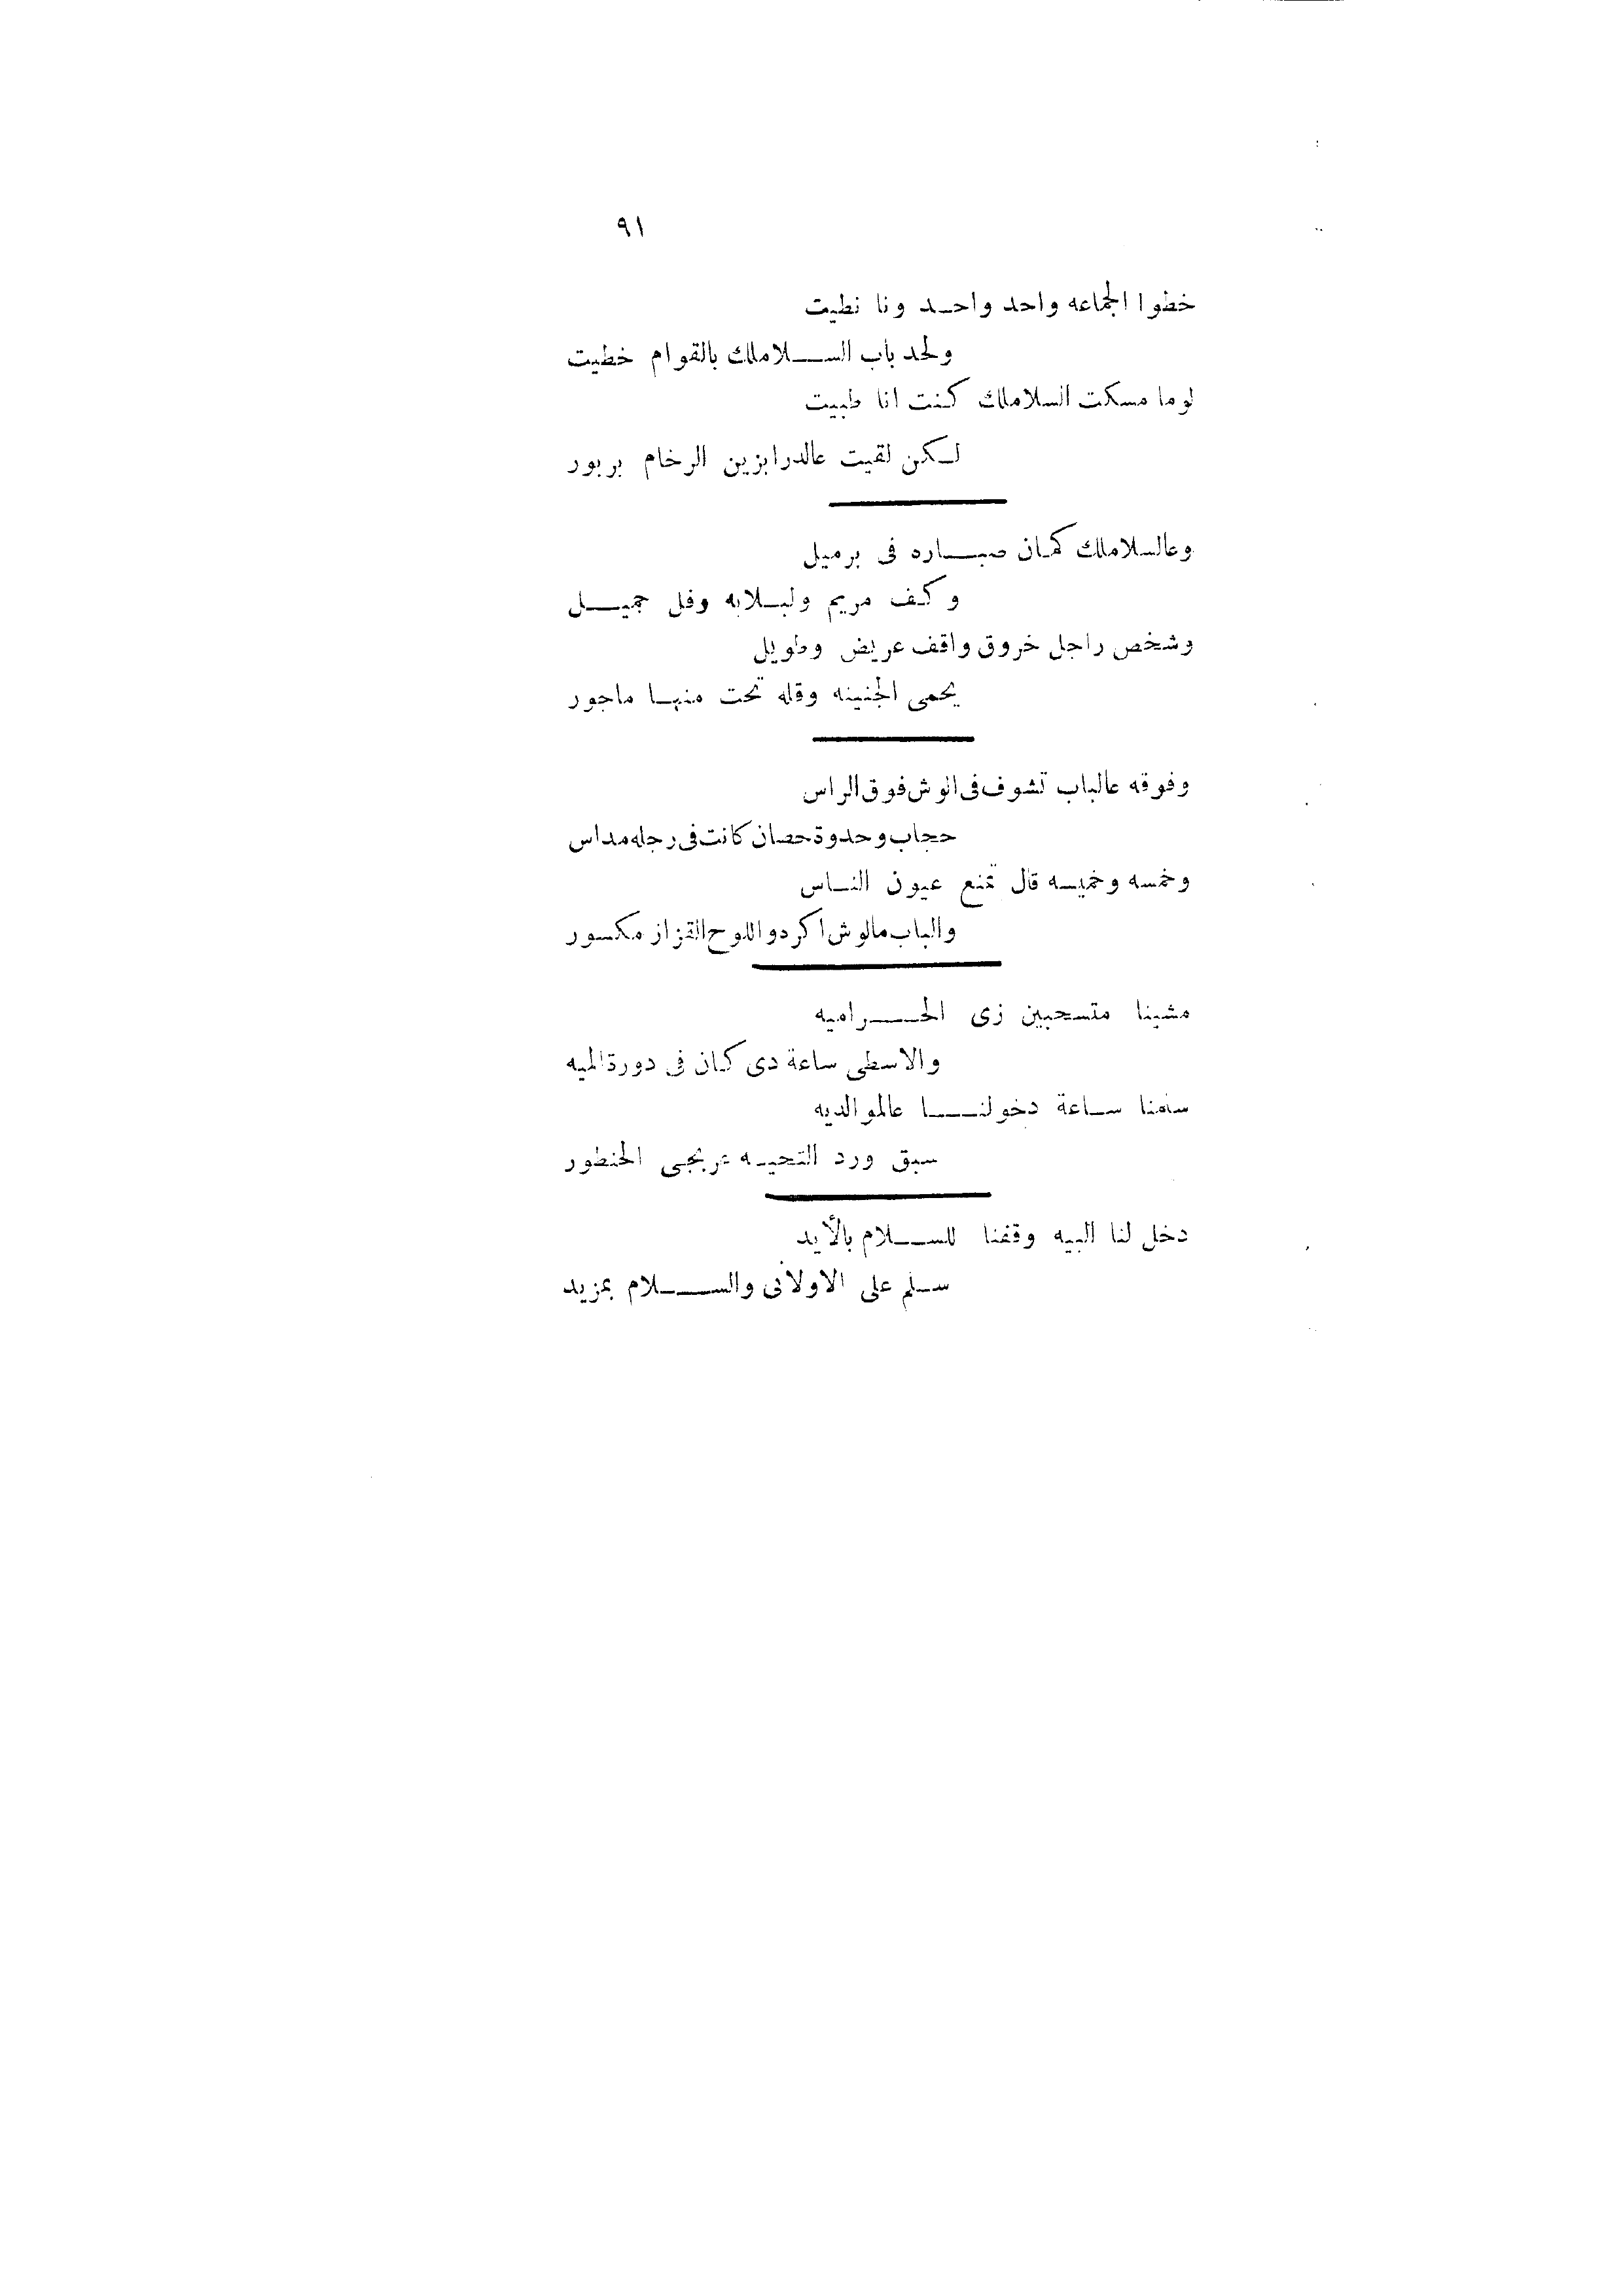 ٩١
خطوا الجماعه واحد واحد ونا نطيت
ولحد باب السلاملك بالقوام خطيت
لوما مسكت السلاملك كنت انا طبيت
لكن لقيت عالدرابزين الرخام بربور
وعالسلاملك كمان صباره فى برميل
وكف مريم ولبلابه وفل جميل
وشخص راجل خروق واقف عريض وطويل
يحمى الجنينه وقله تحت منها ماجور
وفوقه عالباب تشوف فى الوش فوق الراس
حجاب وحدوة حصان كانت فى رجله مداس
وخمسه وخميسه قال تمنع عيون الناس
والباب مالوش اكر دو اللوح القزاز مكسور
مشينا متسحبين زى الحراميه
والاسطى ساعة دى كان فى دورة الميه
ساعة دخولنا عالموالديه
سبق ورد التحيه عربجى الحنطور
دخل لنا البيه وقفنا للسلام بالأيد
سلم على الاولانى والسلام بمزيد